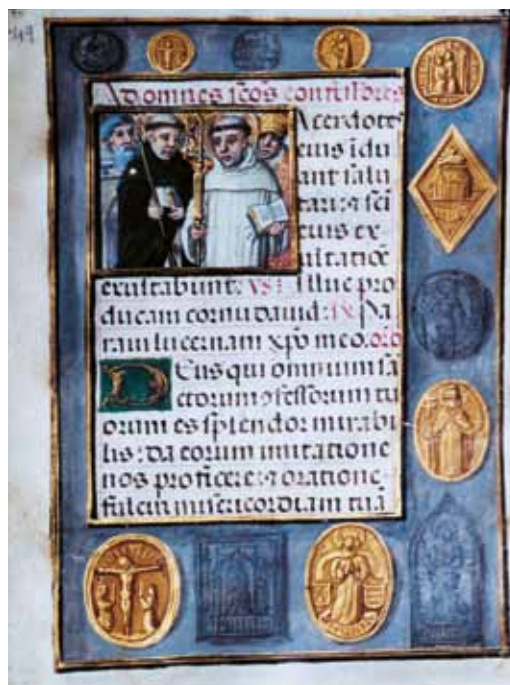 Ad omnes scōs confessores
Acerdotes
eius īdu
ant salu
tari: ⁊ sci
eius ex
ultatiōe
exultabunt. VS Illuc pro
ducam cornu dauid: ꝶ Pa
raui lucernam xpō meo. orō
Deus qui omnium sā
ctorum ꝯfessorum tu
orum es splendor mirabi
lis: da eorum imitatione
nos proficere: ⁊ oratione
fulciri misericordiam tuā